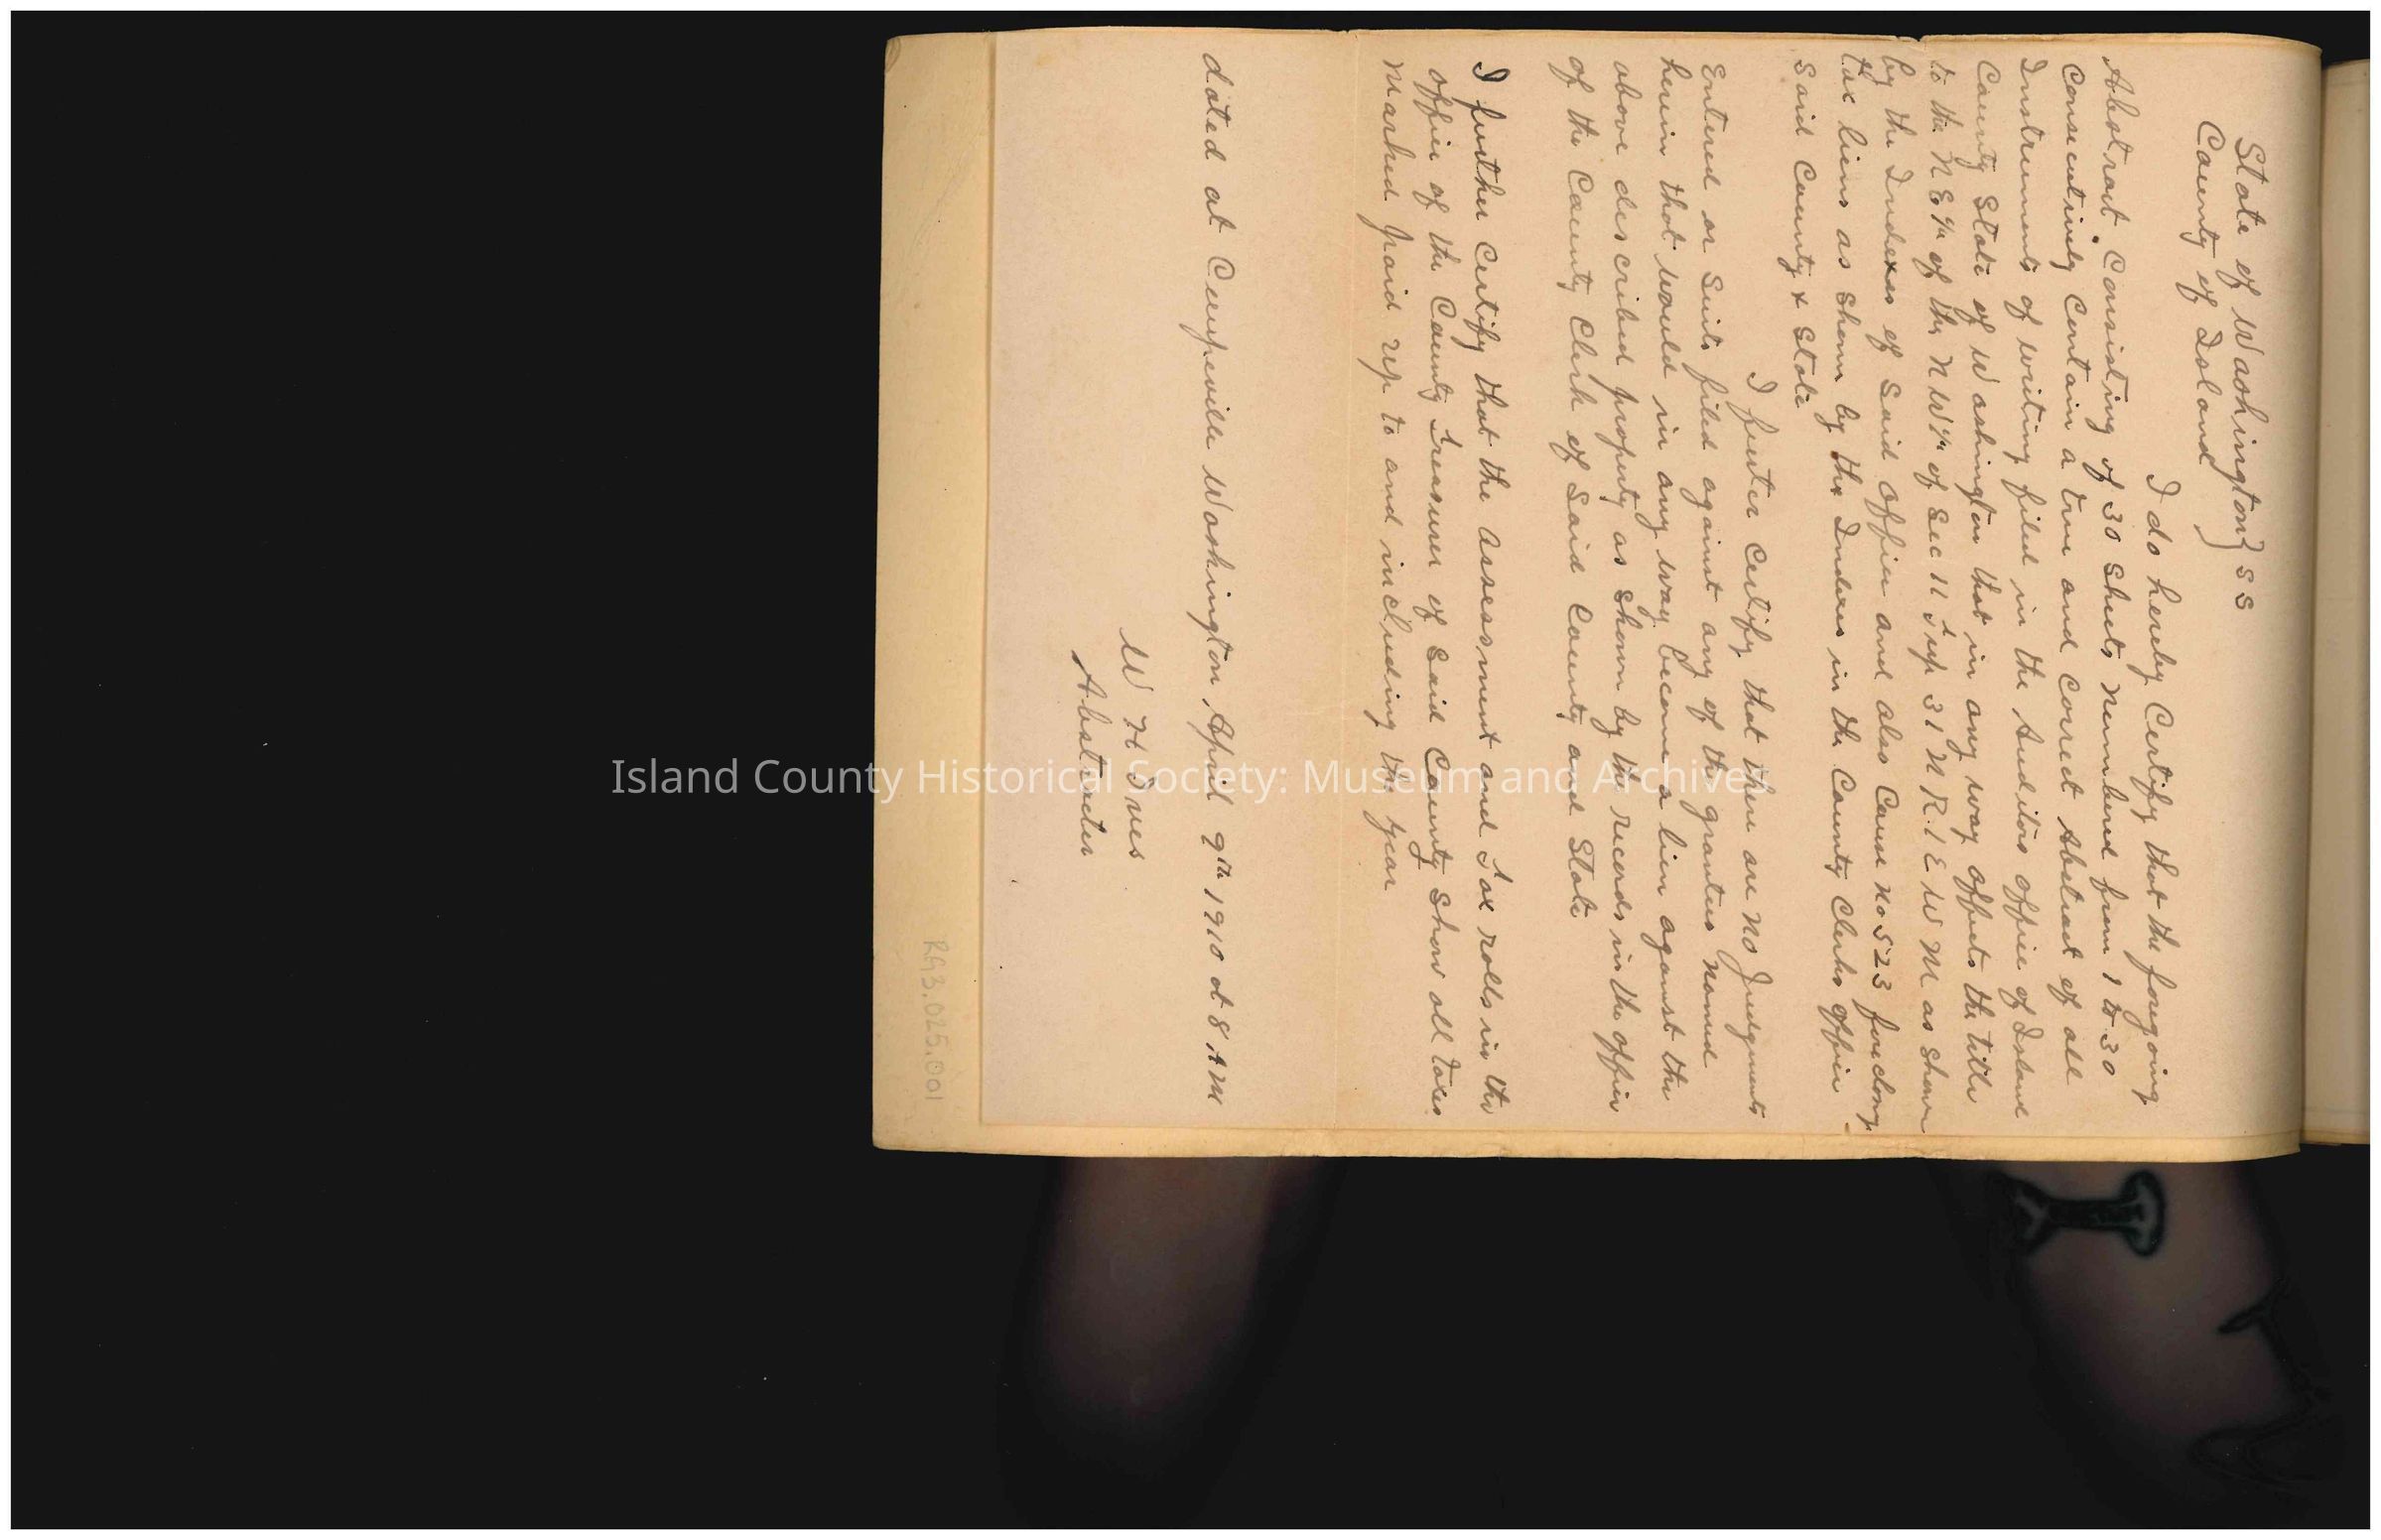 State of Washington } SS
County of Island
I do hereby Certify that the forgoing
Abstract Consisting of 30 Sheets Numbered from 1 to 30
Consecutively Contain a true and Correct Abstract of all
Instruments of writing filed in the Auditors office of Island
County State of Washington that in any way affects the title
to the N E ¼ of the N W ¼ of Sec 11 Twp 31 N R. 1 E W M as Shown
by the Indexes of Said office and also Cause No 523 foreclosing
tax liens as Shown by the Indexes in the County Clerks office
Said County & State
I further Certify that there are no Judgments
Entered or Suits filed against any of the grantees named
herein that would in any way become a lien against the
above described property as Shown by the records in the office
of the County Clerk of Said County and State
I further Certify that the Assessment and Tax rolls in the
office of the County Treasurer of Said County Show all taxes
Marked paid up to and including the year
dated at Coupeville Washington April 9th 1910 at 8 AM
W H Ives
Abstracter
RG3.025.001
Island County Historical Society: Museum and Archives